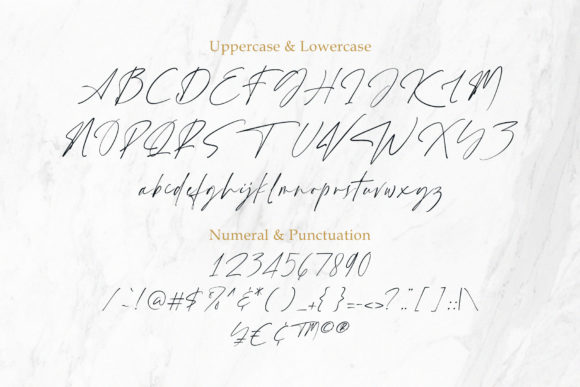 Uppercase & Lowercase
ABCDEFGHIJKLM
NOPQRSTUVWXYZ
abcdefghijklmnopqrstuvwxyz
Numeral & Punctuation
1234567890
/~`!@#$%^&*()_+{}=-<>?¨"[]:;|\
¥€¢™©®